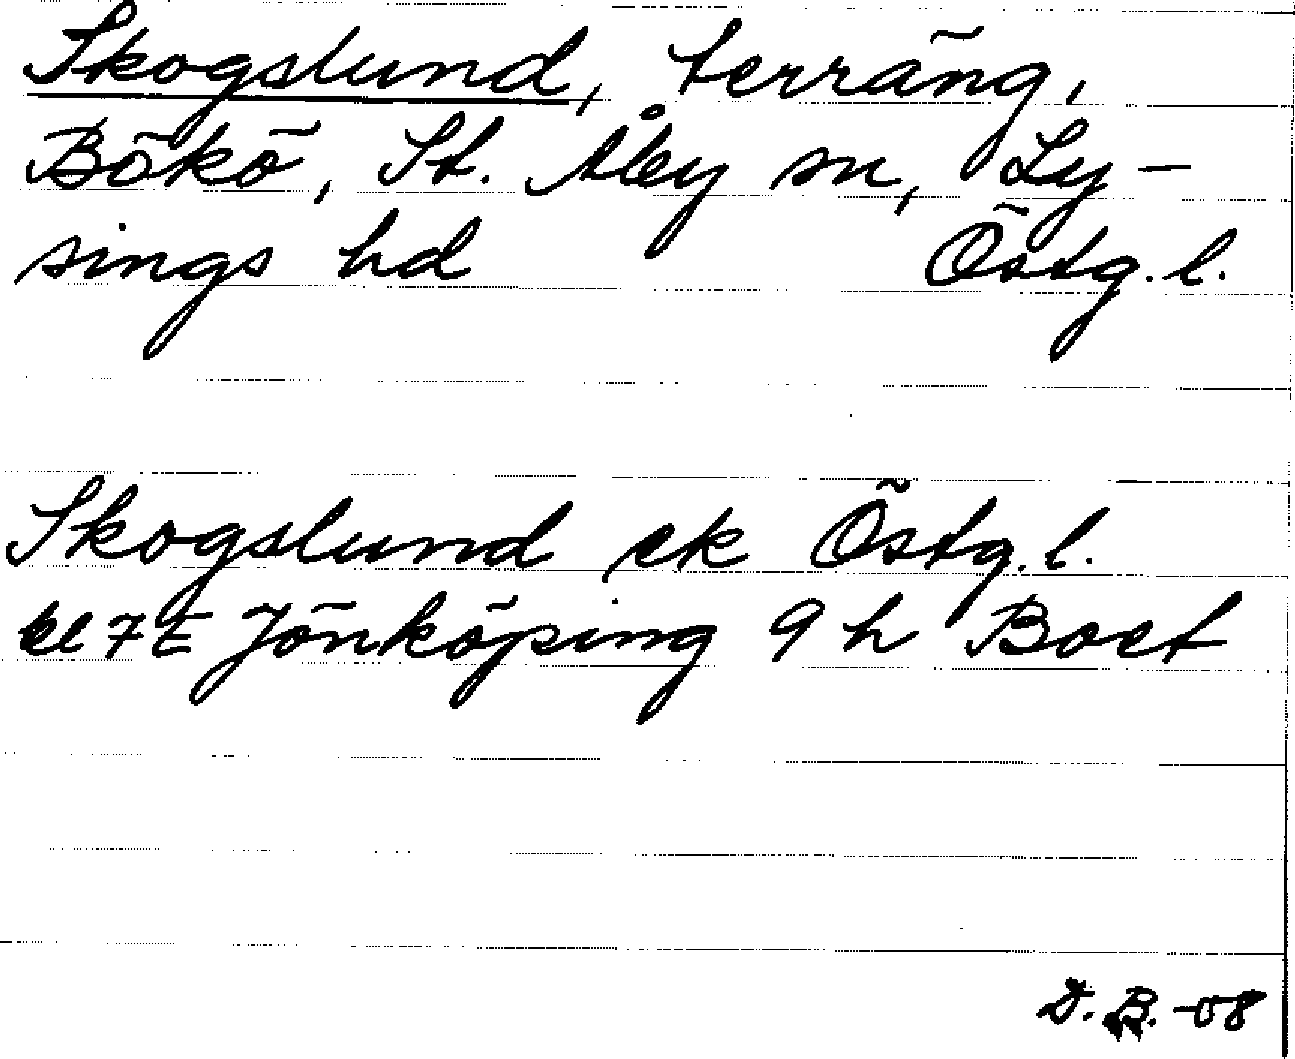 Skogslund, terräng,
Bökö, St. Åby sn, Ly-
sings hd Östg. l.
Skogslund ek Östg. l.
bl 7E Jönköping 9 h Boet
D. B. -08